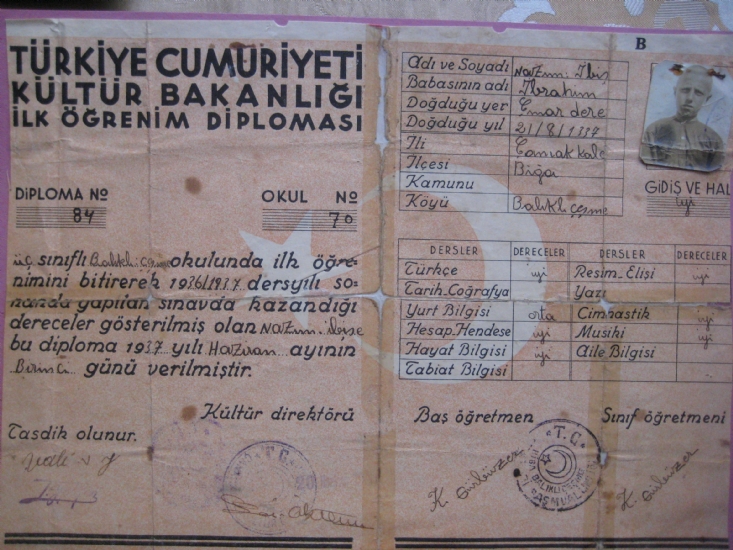 TÜRKİYE CUMURİYETİ
KÜLTÜR BAKANLIĞI
İLK ÖĞRENİM DİPLOMASI
DİPLOMA No
84
OKUL No
70
üç sınıflı Balıklı çeşme okulunda ilk öğre-
nimini bitirerek 1936/1937 dersyılı so-
nunda yapılan sınavda kazandığı
dereceler gösterilmiş olan Nazım
bu diploma 1937 yılı Haziran ayının
Birinci günü verilmiştir.
Kültür direktörü
Tasdik olunur.
B
Adı ve Soyadı Nazım İbiş
Babasının adı İbrahim
Doğduğu yer Çınar dere
Doğduğu yıl
İli Çanakkale
İlçesi Biğa
Kamunu
Köyü Balıklı çeşme
GİDİŞ VE HAL
iyi
DERSLER DERECELER DERSLER DERECELER
Türkçe iyi Resim-Elişi iyi
Tarih-Coğrafya Yazı
Yurt Bilgisi orta Cimnastik iyi
Hesap-Hendese iyi Musiki iyi
Hayat Bilgisi iyi Aile Bilgisi
Tabiat Bilgisi
Baş öğretmen Sınıf öğretmeni
K. Gürbüzer K. Gürbüzer
T.C.
T.C.